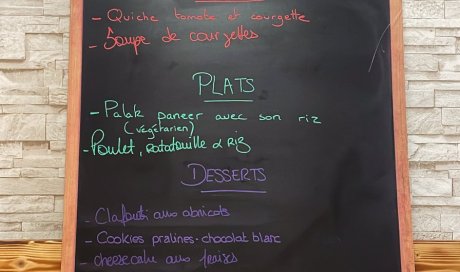 - Quiche tomate et courgette
- Soupe de courgettes
PLATS
- Palak paneer avec son riz
(végétarien)
- Poulet, ratatouille & Riz
DESSERTS
- Clafouti aux abricots
- Cookies pralines - chocolat blanc
- cheesecake aux fraises